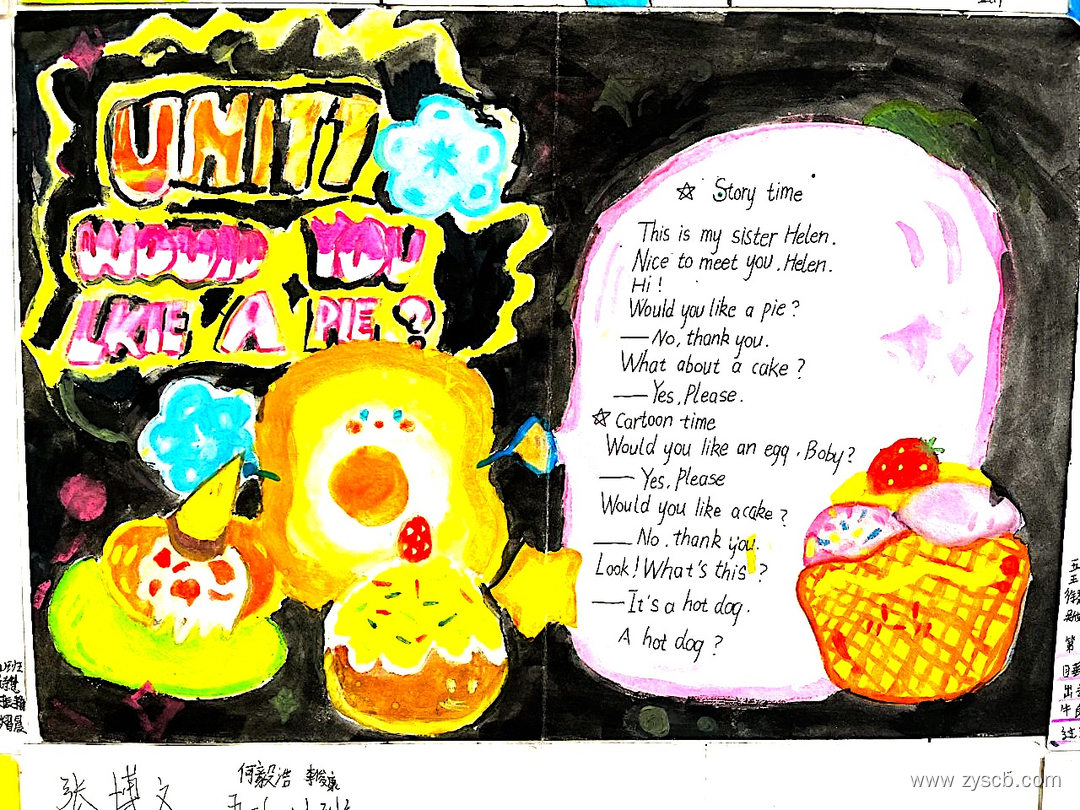 UNIT7
WOULD YOU
LKIE A PIE?
☆ Story time
This is my sister Helen.
Nice to meet you, Helen.
Hi!
Would you like a pie?
—No, thank you.
What about a cake?
—Yes, Please.
☆ Cartoon time
Would you like an egg, Boby?
—Yes, Please
Would you like a cake?
—No, thank you.
Look! What's this?
—It's a hot dog.
A hot dog?
张博文
何毅浩
www.zyscb.com